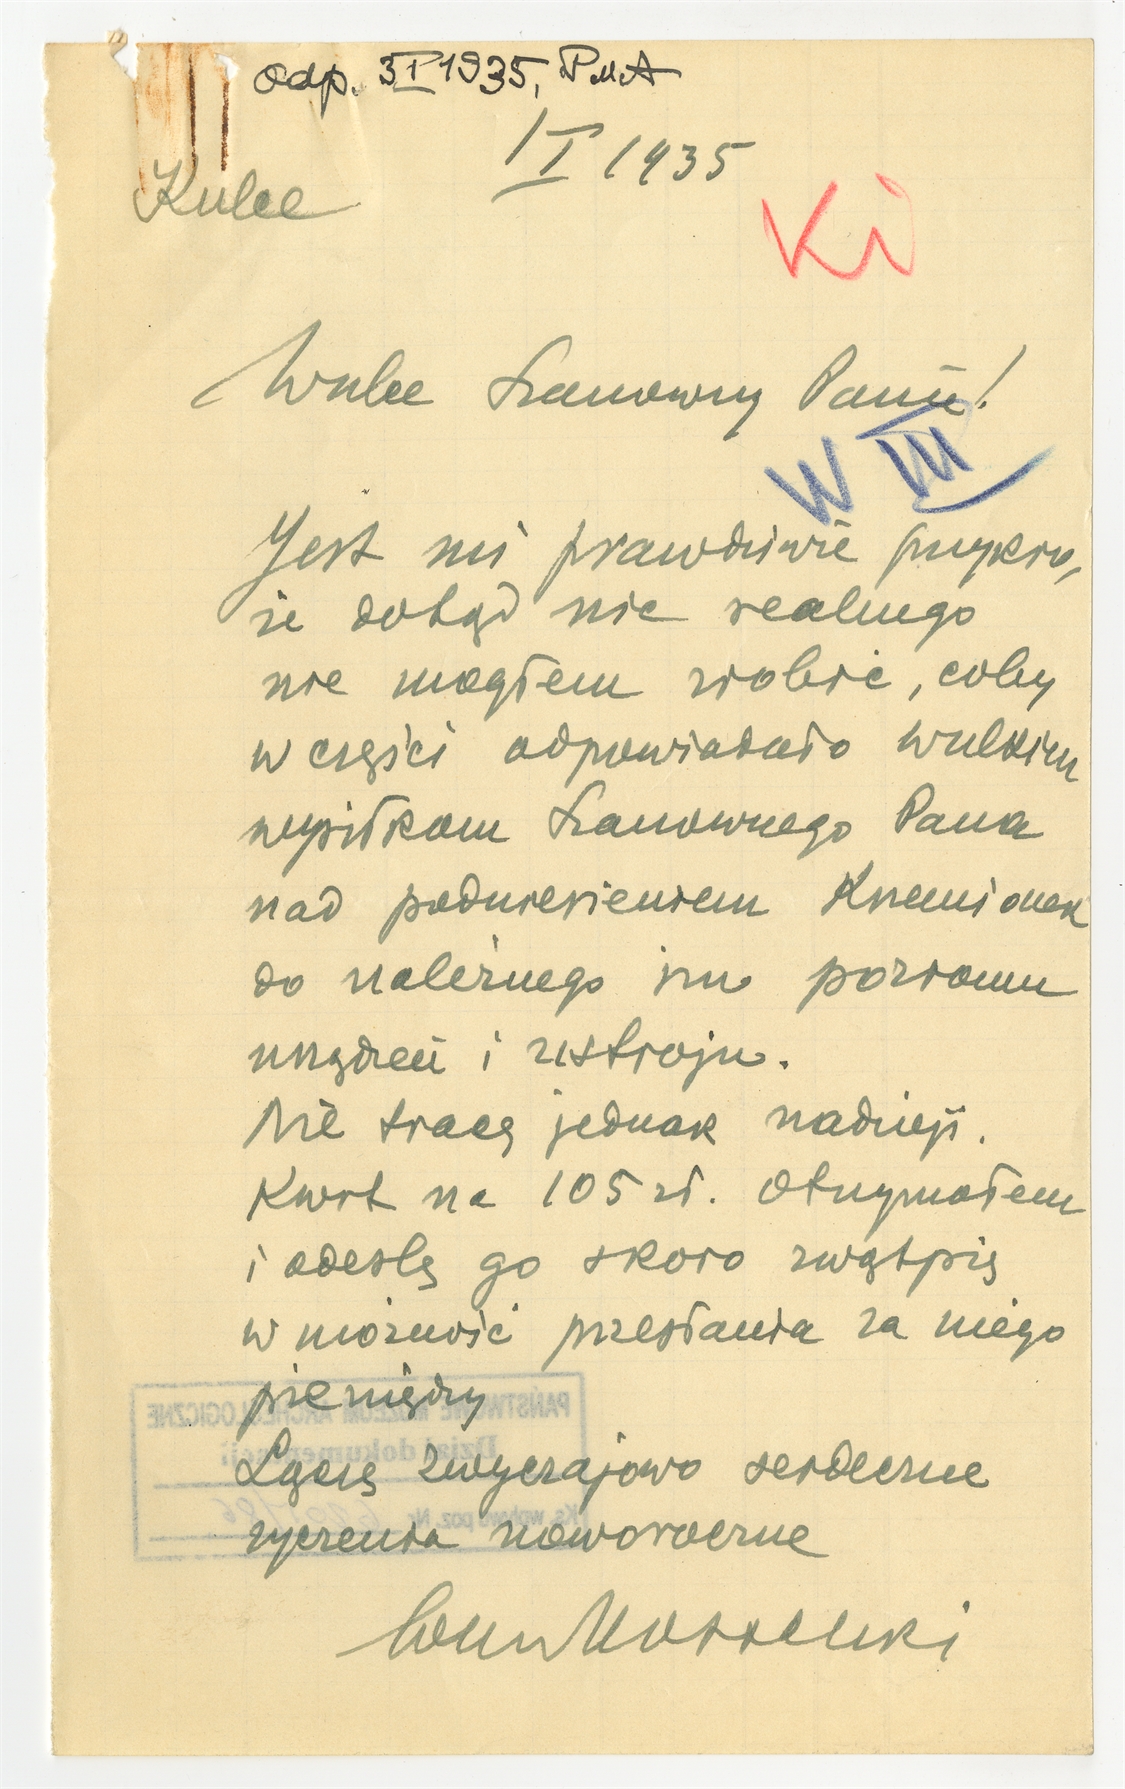 odp. 3 I 1935, PMA
1 I 1935
Kielce
KW
Wielce Szanowny Panie!
W III
Jest mi prawdziwie przykro,
że dotąd nic realnego
nie mogłem zrobić, coby
w części odpowiadało wielkim
wysiłkom Szanownego Pana
nad podniesieniem Krzemionek
do należnego im poziomu
urządzeń i ustroju.
Nie tracę jednak nadzieji.
Kwit na 105 zł. otrzymałem
i odeślę go skoro zwątpię
w możność przesłania za niego
pieniędzy
PAŃSTWOWE MUZEUM ARCHEOLOGICZNE
Dział dokumentacji
Ks. wpływu poz. Nr.
Łączę zwyczajowo serdeczne
życzenia noworoczne